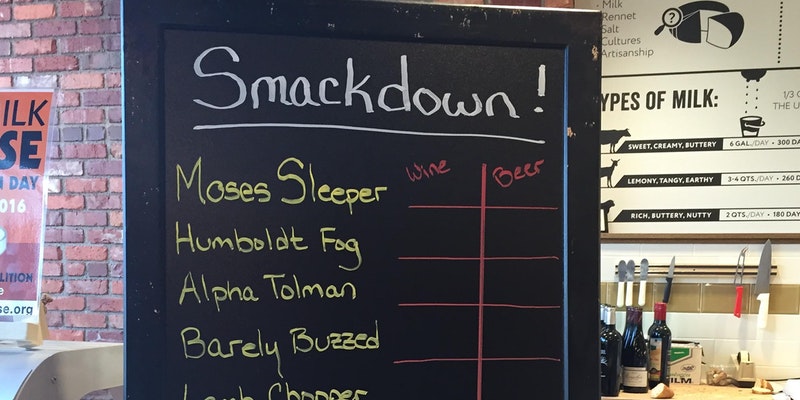 Smackdown!
Wine Beer
Moses Sleeper
Humboldt Fog
Alpha Tolman
Barely Buzzed
Lamb Chopper
MILK
SE
DAY
2016
se.org
Milk
Rennet
Salt
Cultures
Artisanship
YPES OF MILK:
1/3
THE U
SWEET, CREAMY, BUTTERY 6 GAL./DAY • 300 DA
LEMONY, TANGY, EARTHY 3-4 QTS./DAY • 260 D
RICH, BUTTERY, NUTTY 2 QTS./DAY • 180 DAY